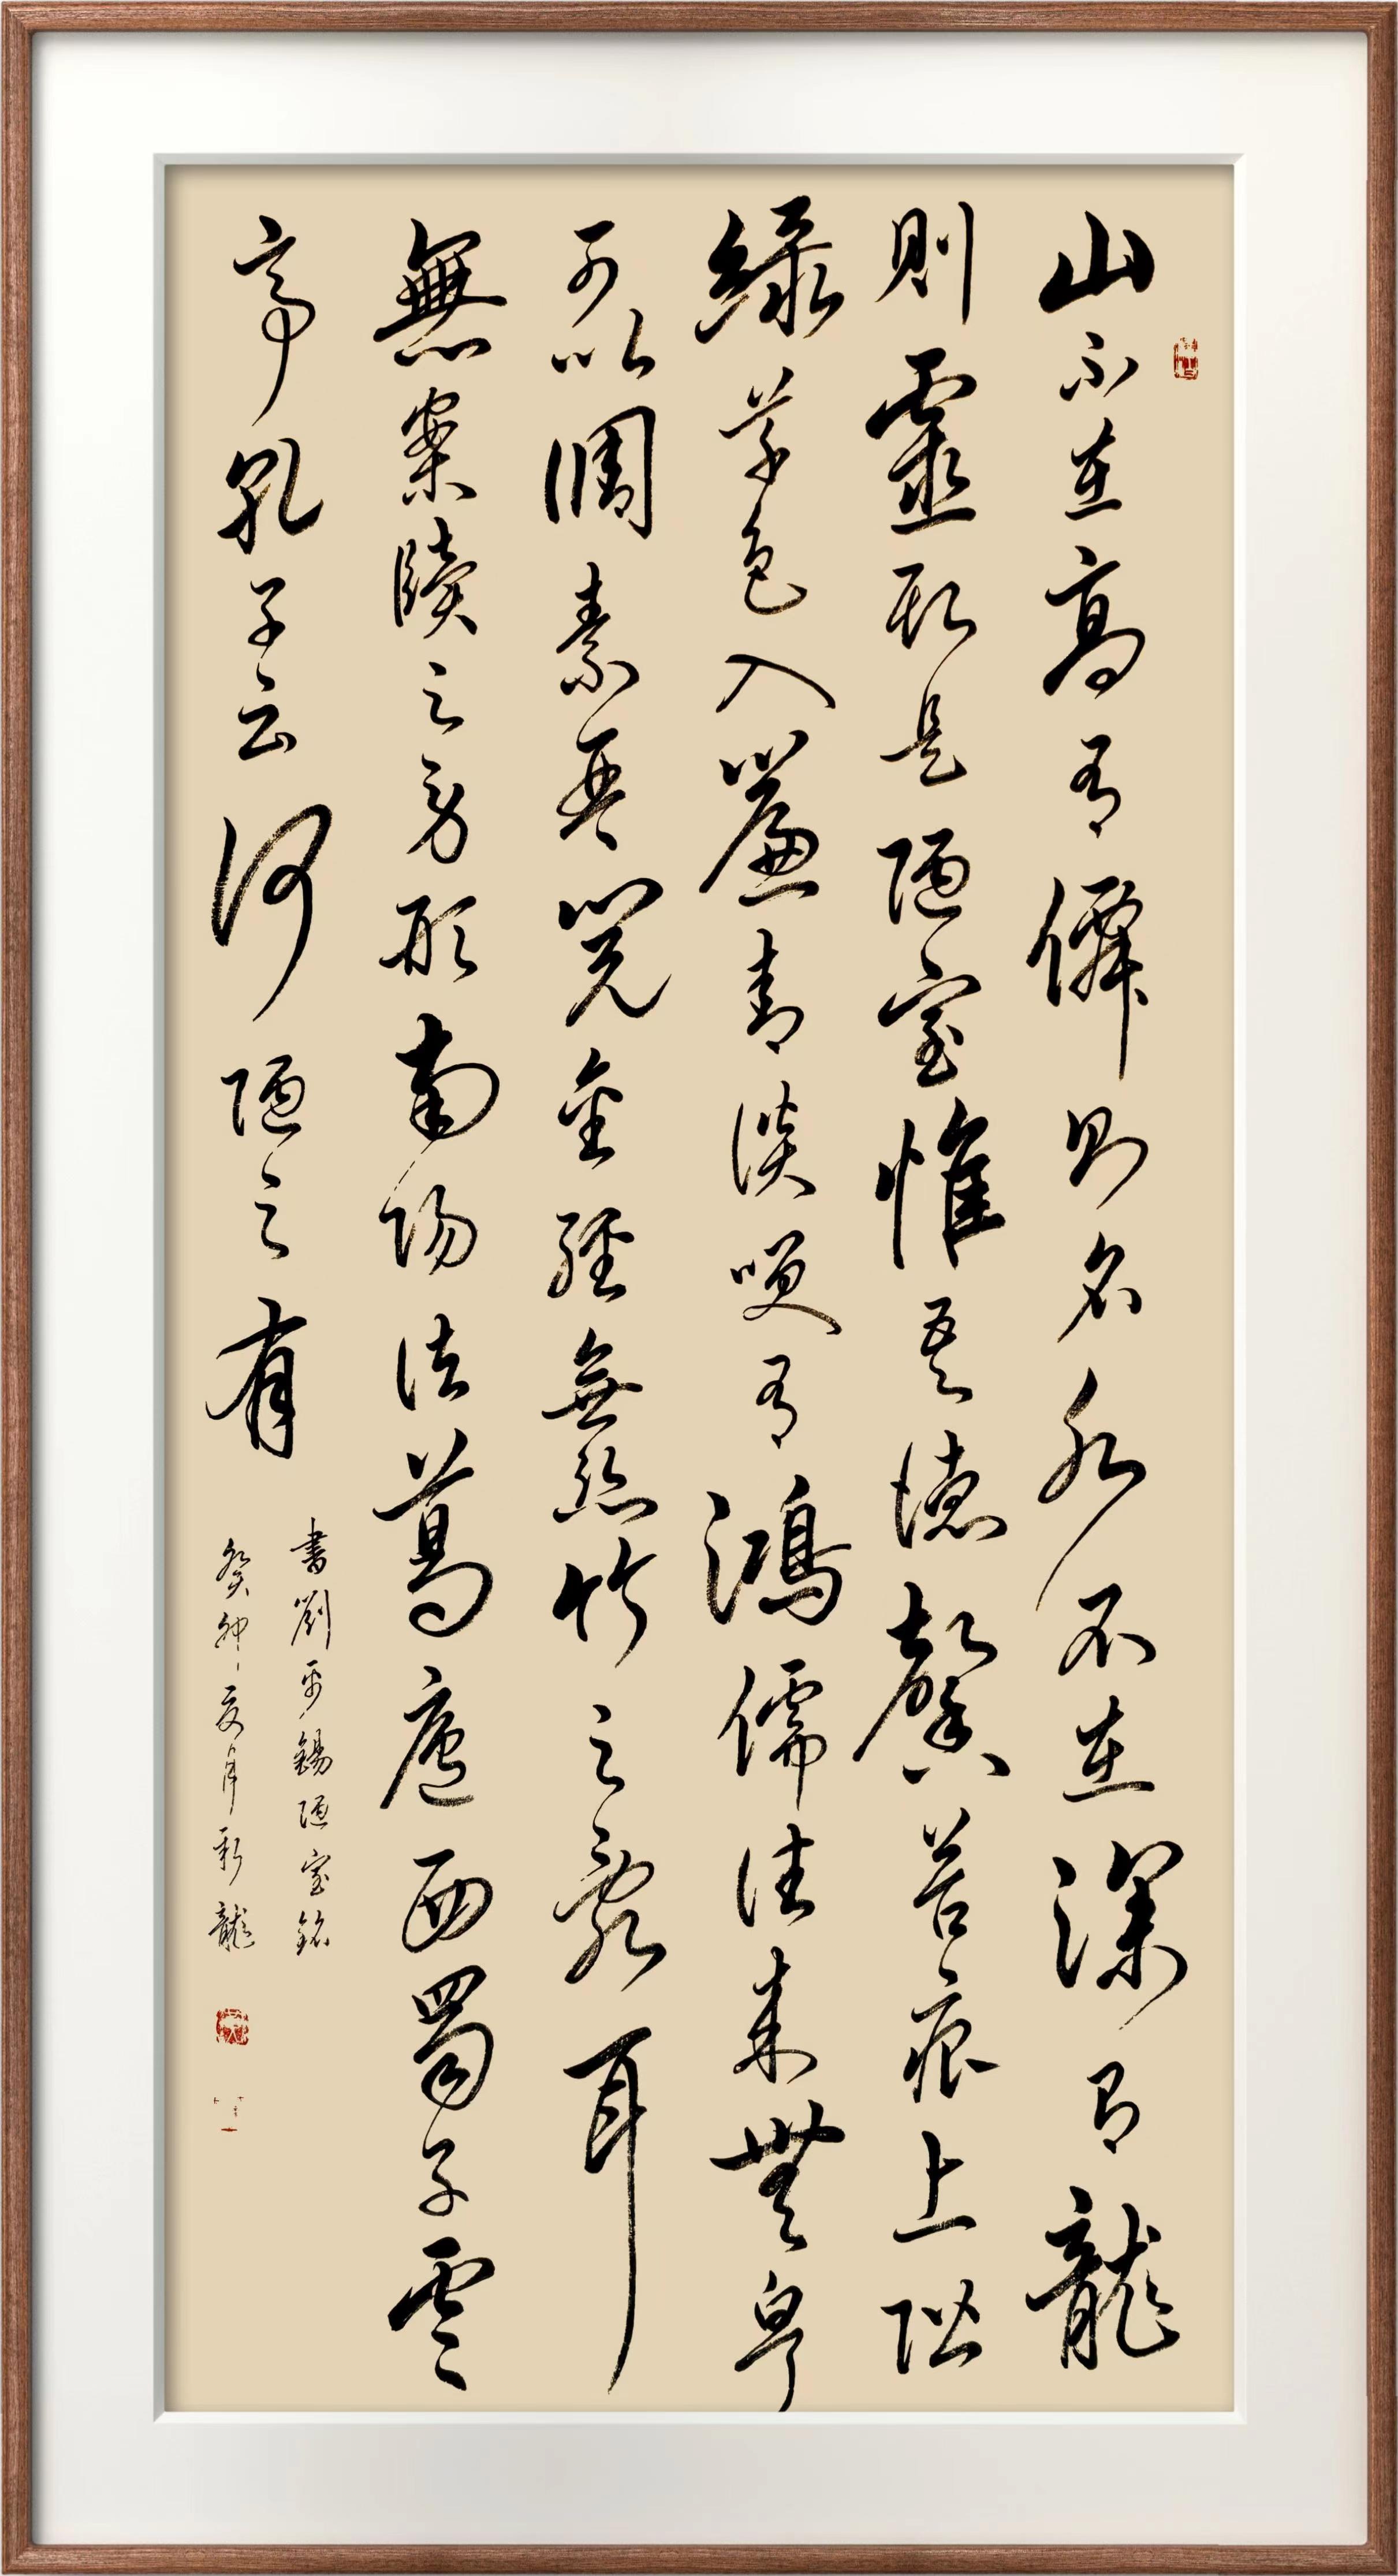 山不在高有僊則名水不在深有龍
則靈斯是陋室惟吾德馨苔痕上階
綠草色入簾青談咲有鴻儒往來無白丁
可以調素琴閱金經無絲竹之亂耳
無案牘之勞形南陽諸葛廬西蜀子雲
亭孔子云何陋之有
書劉禹錫陋室銘
癸卯夏月彩龍